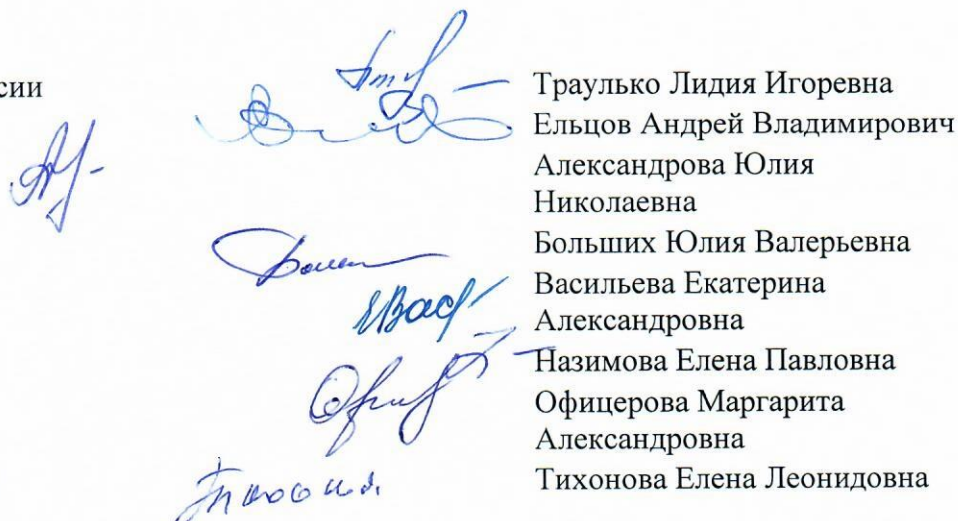 сии
Траулько Лидия Игоревна
Ельцов Андрей Владимирович
Александрова Юлия
Николаевна
Больших Юлия Валерьевна
Васильева Екатерина
Александровна
Назимова Елена Павловна
Офицерова Маргарита
Александровна
Тихонова Елена Леонидовна